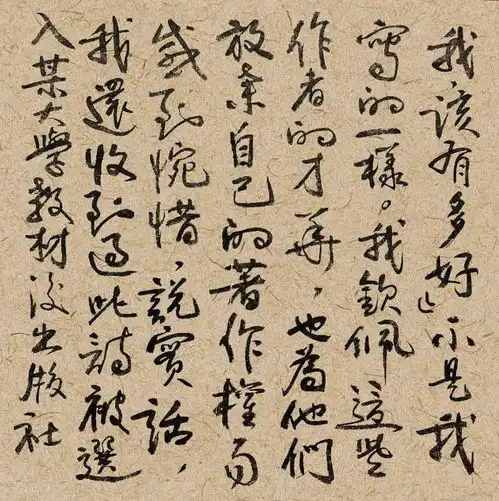 我該有多好」不是我
寫的一樣。我欽佩這些
作者的才華，也為他們
放棄自己的著作權而
感到惋惜，說實話，
我還收到過此詩被選
入某大學教材後出版社